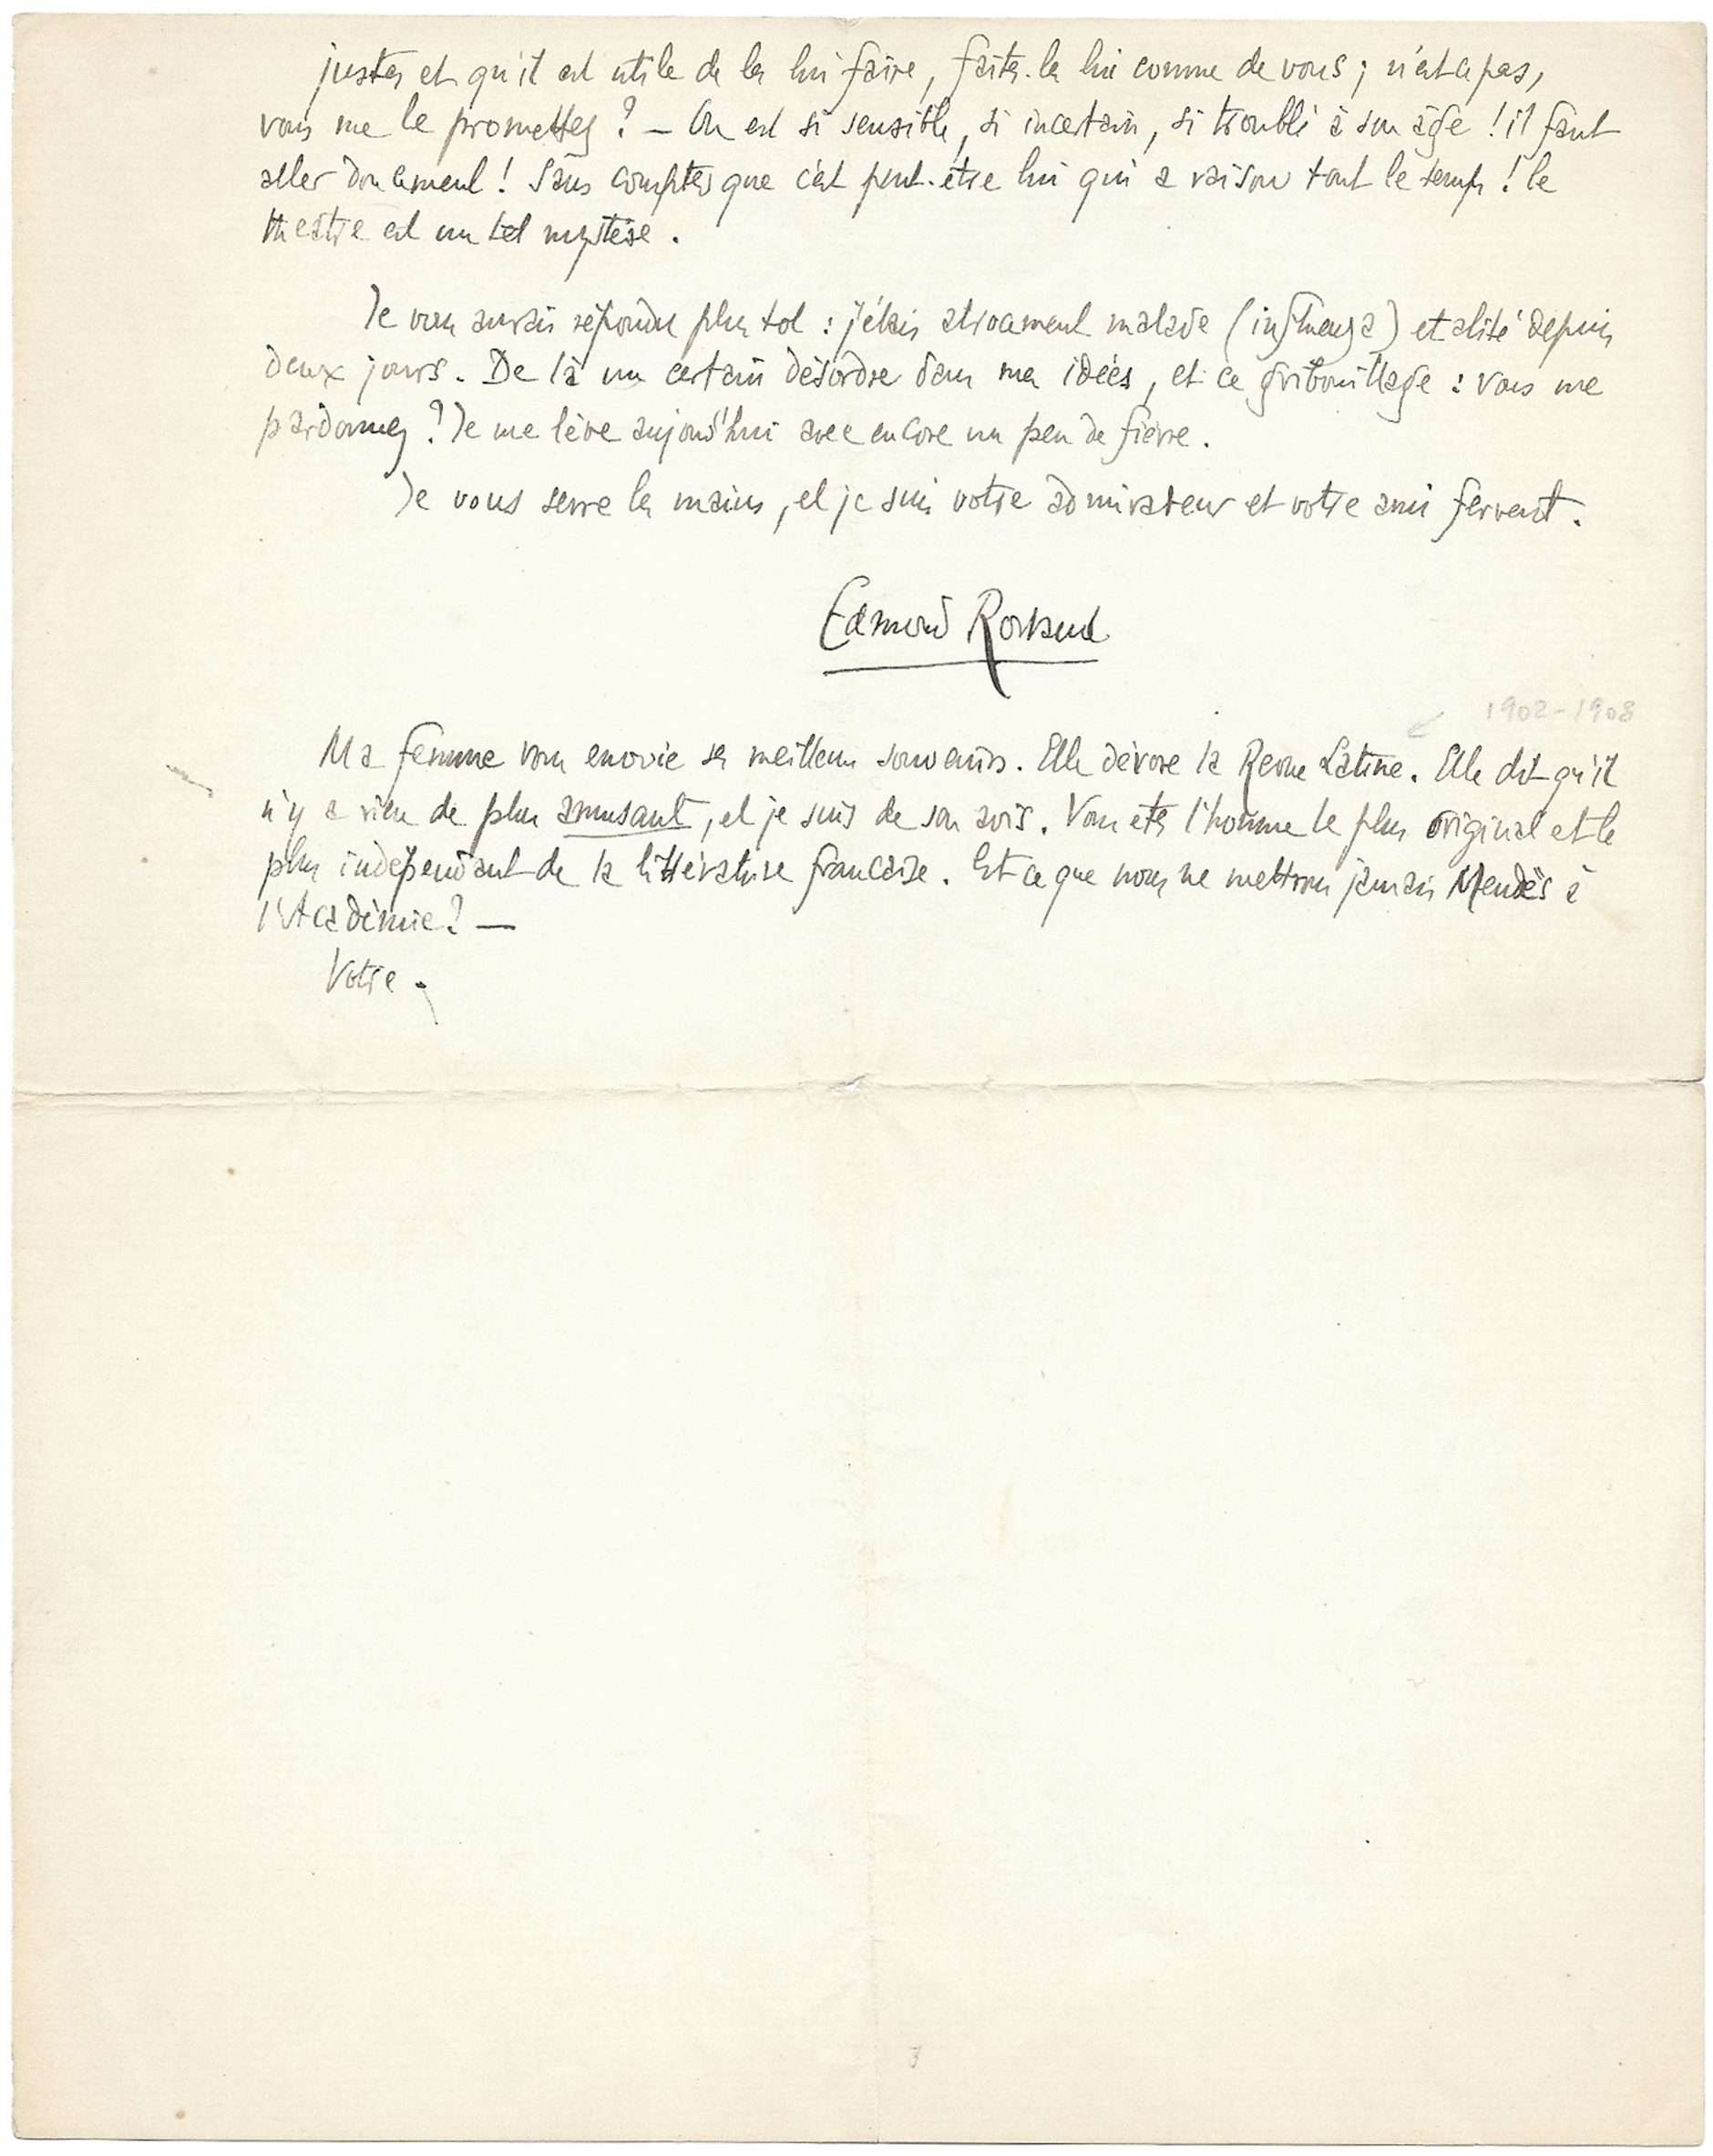 justes et qu'il est utile de les lui faire, faites-les lui comme de vous ; n'est ce pas,
vous me le promettez ? — On est si sensible, si incertain, si troublé à son âge ! il faut
aller doucement ! Sans compter que c'est peut-être lui qui a raison tout le temps ! le
théâtre est un tel mystère.
Je vous aurais répondu plus tôt : j'étais atrocement malade (influenza) et alité depuis
deux jours. De là un certain désordre dans mes idées, et ce gribouillage : vous me
pardonnez ? Je me lève aujourd'hui avec encore un peu de fièvre.
Je vous serre les mains, et je suis votre admirateur et votre ami fervent.
Edmond Rostand
1902-1908
Ma femme vous envoie ses meilleurs souvenirs. Elle dévore la Revue Latine. Elle dit qu'il
n'y a rien de plus amusant, et je suis de son avis. Vous êtes l'homme le plus original et le
plus indépendant de la littérature française. Est ce que nous ne mettrons jamais Mendès à
l'Académie ? —
Votre.
3